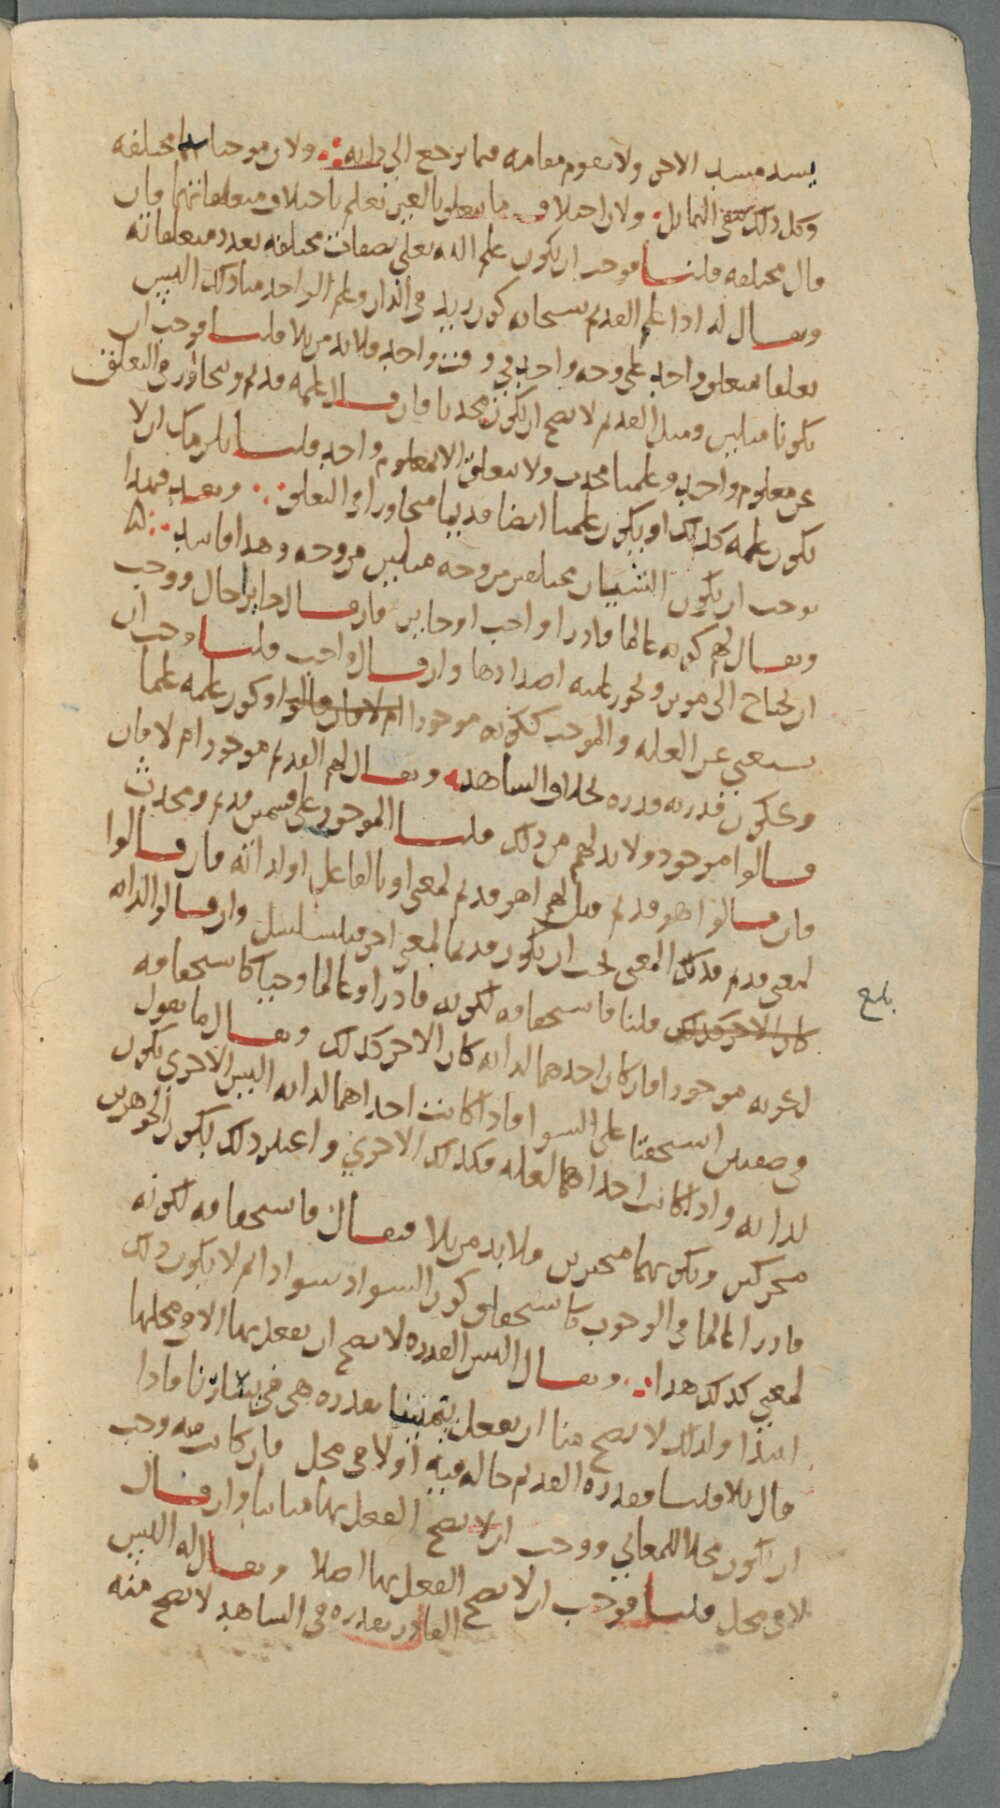 يسد مسد الاخر ولا يقوم مقامه فيما يرجع الى ذاته ولان موجباتها مختلفة
وكل ذلك ينفي التماثل ولان اختلاف ما يتعلق بالغير تعلم باختلاف متعلقاتهما فان
قال مختلفه قلنا فوجب ان يكون علم الله تعلي بصفات مختلفه بعدد متعلقاته
ويقال له اذا علم القديم سبحانه كون زيد في الدار وعلم الواحد منا ذلك اليس
تعلقا بمتعلق واحد على وجه واحد في وقت واحد فلا بد من بلا قلنا فوجب ان
يكونا مثلين ومثل القديم لا يصح ان يكون محدثا فان قال علمه قديم ويتجاوز في التعلق
عن معلوم واحد وعلمنا محدث ولا يتعلق الا بمعلوم واحد قلنا يلزمك ان لا
يكون علمه كذلك او يكون علمنا ايضا قديما متجاورا في التعلق وبعد فهذا
يوجب ان يكون الشيئان مختلفين من وجه مثلين من وجه وهذا فاسد
ويقال لهم كونه عالما قادرا واجب او جايز فان قال جايز احال ووجب
ان يحتاج الى موثر ولجوز عليه اضدادها وان قال واجب قلنا وجب ان
يستغني عن العله والموجب ككونه موجودا ام لا فان قالوا او كون علمه علما
وككون قدرته قدره بخلاف الشاهد ويقال لهم القديم موجود ام لا فان
قالوا موجود ولا بد لهم من ذلك قلنا الموجود على قسمين قديم ومحدث
فان قالوا هو قديم قيل لهم اهو قديم لمعنى او بالفاعل او لذاته فان قالوا
لمعنى قديم فذلك المعنى يجب ان يكون قديما لمعنى اخر فيتسلسل وان قالوا لذاته
كان الاخر كذلك قلنا فاستحقاقه لكونه قادرا وعالما وحيا كاستحقاقه
لكونه موجودا فان كان احدهما لذاته كان الاخر كذلك ويقال ما تقول
في صفتين استحقتا على السوا فاذا كانت احداهما لذاته اليس الاخرى تكون
لذاته واذا كانت احداهما لعله فكذلك الاخرى واعتبر ذلك بكون الجوهرين
متحركين وبكونهما متحيزين فلا بد من بلا فيقال فاستحقاقه لكونه
قادرا عالما في الوجوب كاستحقاق كون السواد سوادا لم لا يكون ذلك
لمعنى كذلك هذا ويقال اليس القدره لا يصح ان يفعل بها الا في محلها
ابتدا ولذلك لا يصح منا ان نفعل بيميننا بقدره هي في يسارنا فاذا
قال بلا قلنا فقدره القديم حاله فيه او لا في محل فان كانت فيه وجب
ان يكون محلا للمعاني ووجب ان لا يصح الفعل بها مباينا وان قال
لا في محل قلنا فوجب ان لا يصح الفعل بها اصلا ويقال له اليس
القادر بقدره في الشاهد لا يصح منه
بلغ